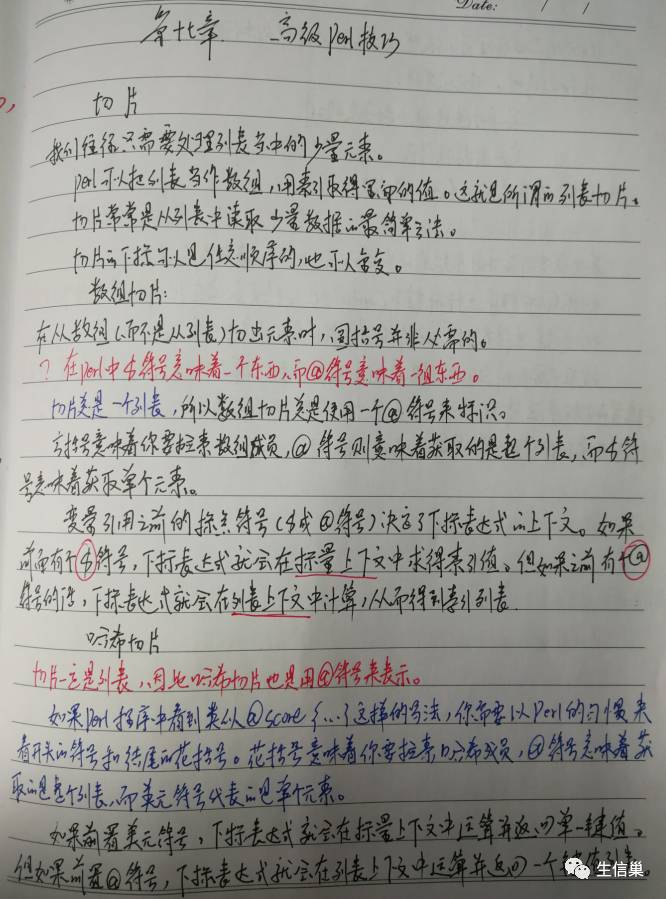 Date: / /
第十七章 高级Perl技巧
切片
我们往往只需要处理列表当中的少量元素。
Perl可以把列表当作数组,用索引取得里面的值。这就是所谓的列表切片。
切片常常是从列表中读取少量数据的最简单方法。
切片的下标可以是任意顺序的,也可以重复。
数组切片:
在从数组(而不是从列表)切出元素时,圆括号并非必需的。
? 在Perl中$符号意味着一个东西,而@符号意味着一组东西。
切片总是一个列表,所以数组切片总是使用一个@符号来标识。
方括号意味着你要检索数组成员,@符号则意味着获取的是整个列表,而$符
号意味着获取单个元素。
变量引用之前的标点符号($或@符号)决定了下标表达式的上下文。如果
前面有个$符号,下标表达式就会在标量上下文中求得索引值。但如果之前有个@
符号的话,下标表达式就会在列表上下文中计算,从而得到索引列表.
哈希切片
切片一定是列表,因此哈希切片也是用@符号来表示。
如果Perl程序中看到类似@score{...}这样的写法,你需要以Perl的习惯来
看开头的符号和结尾的花括号。花括号意味着你要检索哈希成员,@符号意味着获
取的是整个列表,而美元符号代表的是单个元素。
如果前置美元符号,下标表达式就会在标量上下文中运算并返回单一键值。
但如果前置@符号,下标表达式就会在列表上下文中运算并返回一个键值列表。
生信巢